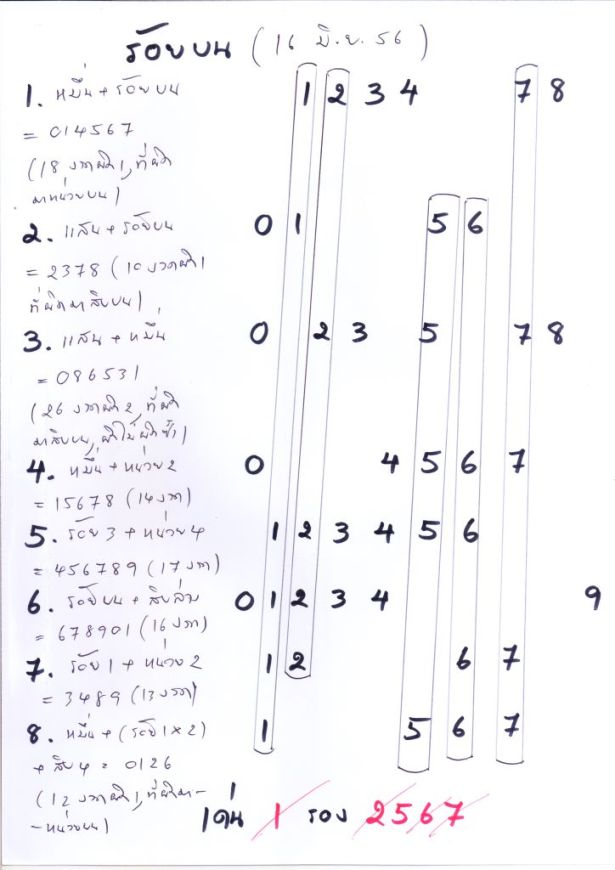 ร้อยบน (16 มิ.ย. 56)
1. หมื่น + ร้อยบน 1 2 3 4 7 8
= 014567
(18 งวดผิด 1, ที่ผิด
มาหน่วยบน)
2. แสน + ร้อยบน 0 1 5 6
= 2378 (10 งวดผิด 1
ที่ผิดมาสิบบน)
3. แสน + หมื่น 0 2 3 5 7 8
= 086531
(26 งวดผิด 2, ที่ผิด
มาสิบบน, ผิดไม่ผิดซ้ำ)
4. หมื่น + หน่วย 2 0 4 5 6 7
= 15678 (14 งวด)
5. ร้อย 3 + หน่วย 4 1 2 3 4 5 6
= 456789 (17 งวด)
6. ร้อยบน + สิบล่าง 0 1 2 3 4 9
= 678901 (16 งวด)
7. ร้อย 1 + หน่วย 2 1 2 6 7
= 3489 (13 งวด)
8. หมื่น + (ร้อย 1 x 2) 1 5 6 7
+ สิบ 4 = 0126
(12 งวดผิด 1, ที่ผิดมา-
-หน่วยบน)
เด่น 1 รอง 2567